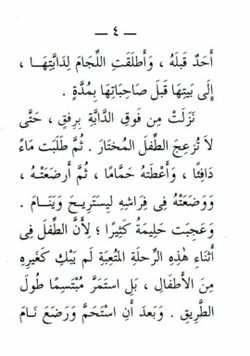 — ٤ —
أَحَدٌ قَبْلَهُ ، وَأَطْلَقَتِ اللِّجَامَ لِدَابَّتِهَا ،
إِلَى بَيْتِهَا قَبْلَ صَاحِبَاتِهَا بِمُدَّةٍ .
نَزَلَتْ مِنْ فَوْقِ الدَّابَّةِ بِرِفْقٍ ، حَتَّى
لَا تُزْعِجَ الطِّفْلَ الْمُخْتَارَ . ثُمَّ طَلَبَتْ مَاءً
دَافِئًا ، وَأَعْطَتْهُ حَمَّامًا ، ثُمَّ أَرْضَعَتْهُ ،
وَوَضَعَتْهُ فِى فِرَاشِهِ لِيَسْتَرِيحَ وَيَنَامَ .
وَعَجِبَتْ حَلِيمَةُ كَثِيرًا ؛ لِأَنَّ الطِّفْلَ فِى
أَثْنَاءِ هٰذِهِ الرِّحْلَةِ الْمُتْعِبَةِ لَمْ يَبْكِ كَغَيْرِهِ
مِنَ الْأَطْفَالِ ، بَلِ اسْتَمَرَّ مُبْتَسِمًا طُولَ
الطَّرِيقِ . وَبَعْدَ أَنِ اسْتَحَمَّ وَرَضَعَ نَامَ